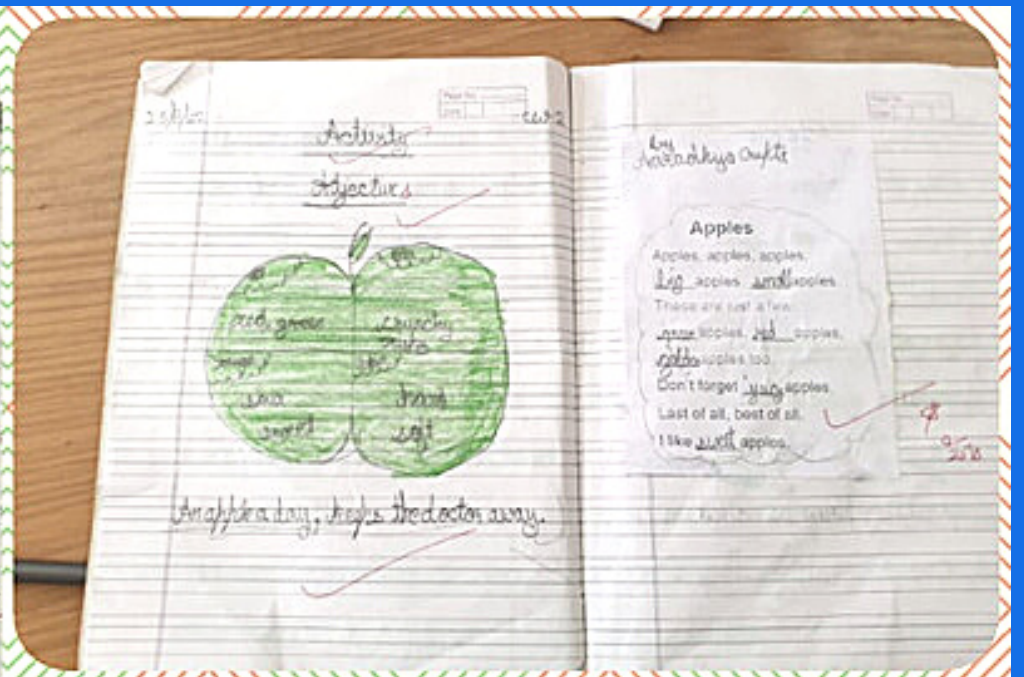 Page No.
Date
Activity
Adjectives
red, green
crunchy
juicy
sour
hard
sweet
soft
An apple a day, keeps the doctor away.
by
Aaradhya Gupte
Apples
Apples, apples, apples,
big apples small apples
These are just a few.
green apples, red apples,
golden apples too.
Don't forget yucy apples
Last of all, best of all,
I like swett apples.